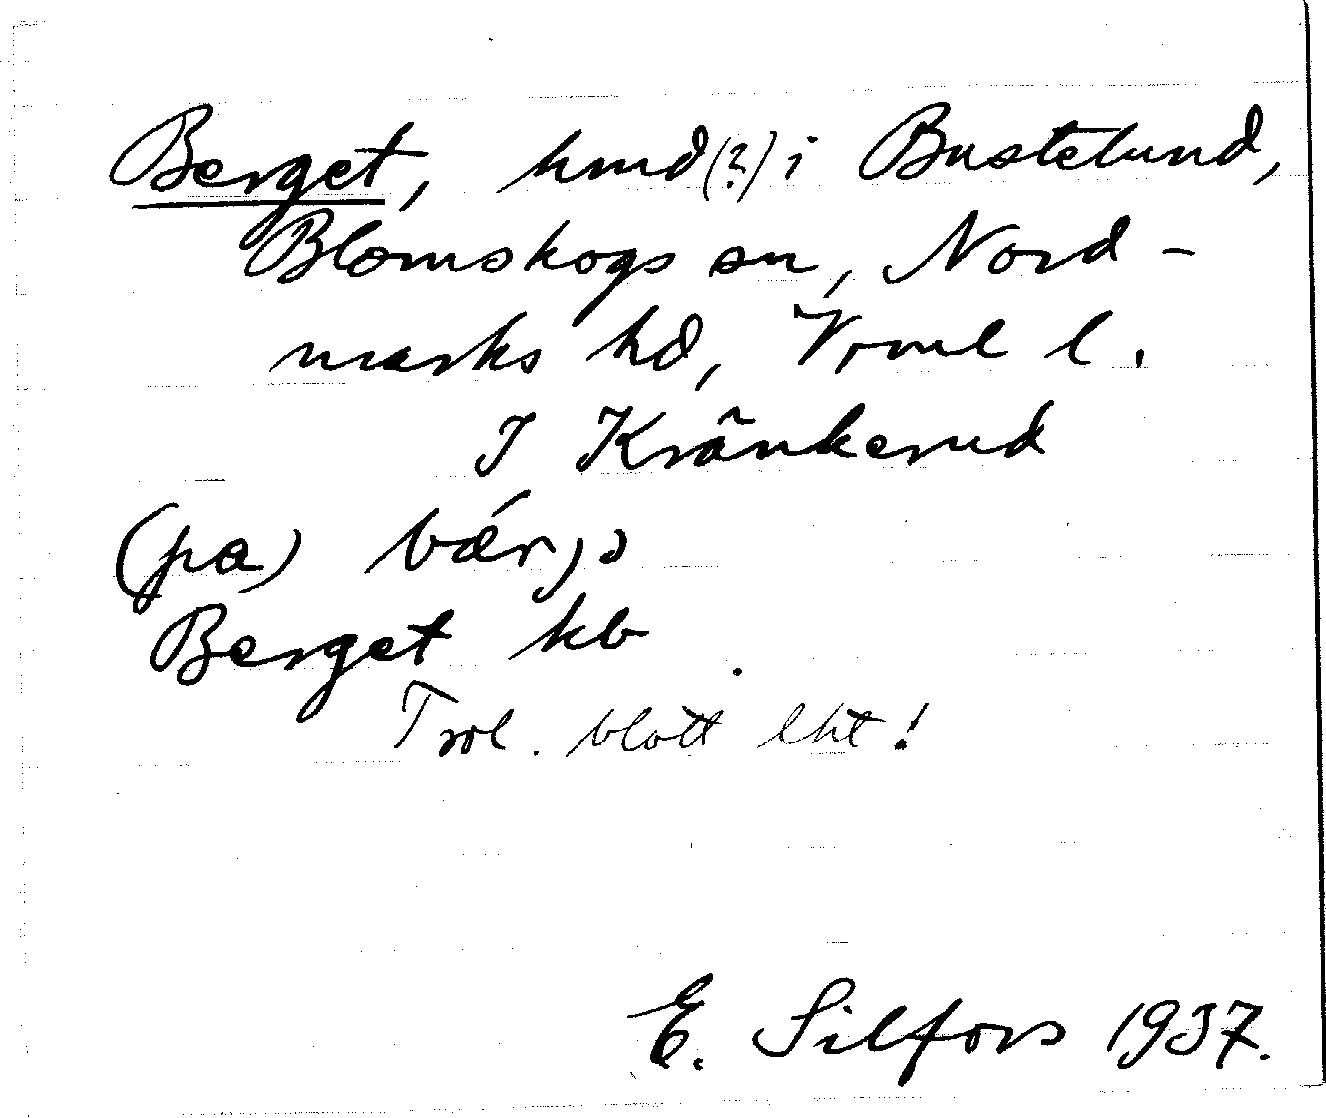 Berget, hmd(?) i Bustelund,
Blomskogs sn, Nord-
marks hd, Vrml l.
I Kränkerud
(pa) bǽrjə
Berget kb
Trol. blott lht!
E. Silfors 1937.